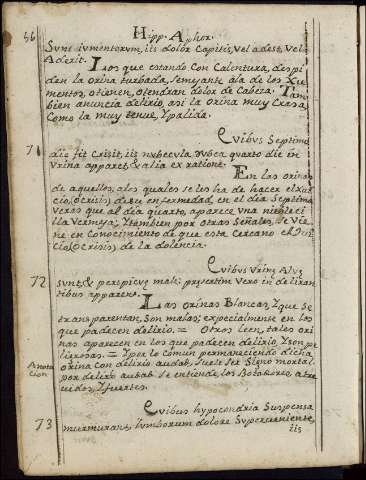 56 Hipp. Aphor.
Sunt iumentorum, iis dolor Capitis, Vel adest, Vel
Aderit. Los que estando con Calentura, despi
den la orina turbada, semejante âla de los Ju
mentos, otienen, otendran dolor de Cabeza. Tam
bien anuncia delirio, asi la orina muy Crasa,
Como la muy tenue, Ypalida.
Quibus Septima
71
die fit Crisis, iis nubecula rubea quarto die in
Vrina apparet, & alia ex ratione.
En las orinas
de aquellos, alos quales seles ha de hacer el Jui
cio, (o Crisis) desu enfermedad, en el dia Septimo,
Veras que al dia quarto, aparece Vna nieblecí
lla Vermeja; Ytambien por otras Señales, se Vie
ne en Conocimiento de que esta Cercano el Jui
cio, (o Crisis) de la dolencia.
Quibus Vrinæ Albæ
72
sunt, & perspicuæ malæ: præsertim Vero in deliran
tibus apparent.
Las orinas Blancas, Yque Se
transparentan, Son malas; expecialmente en los
que padecen delirio. = Otros leen, tales ori
nas aparecen en los que padecen delirio, Yson pe
ligrosas. = Yper lo comun permaneciendo dicha
Anota
cion
orina con delirio audab, Suele ser Signo mortal.
por delirio audab se entiende los Botadores, atre
uidos, Yfuertes.
Quibus hypocondria Suspensa
73
murmurant, lumborum dolore Superueniente,
iis